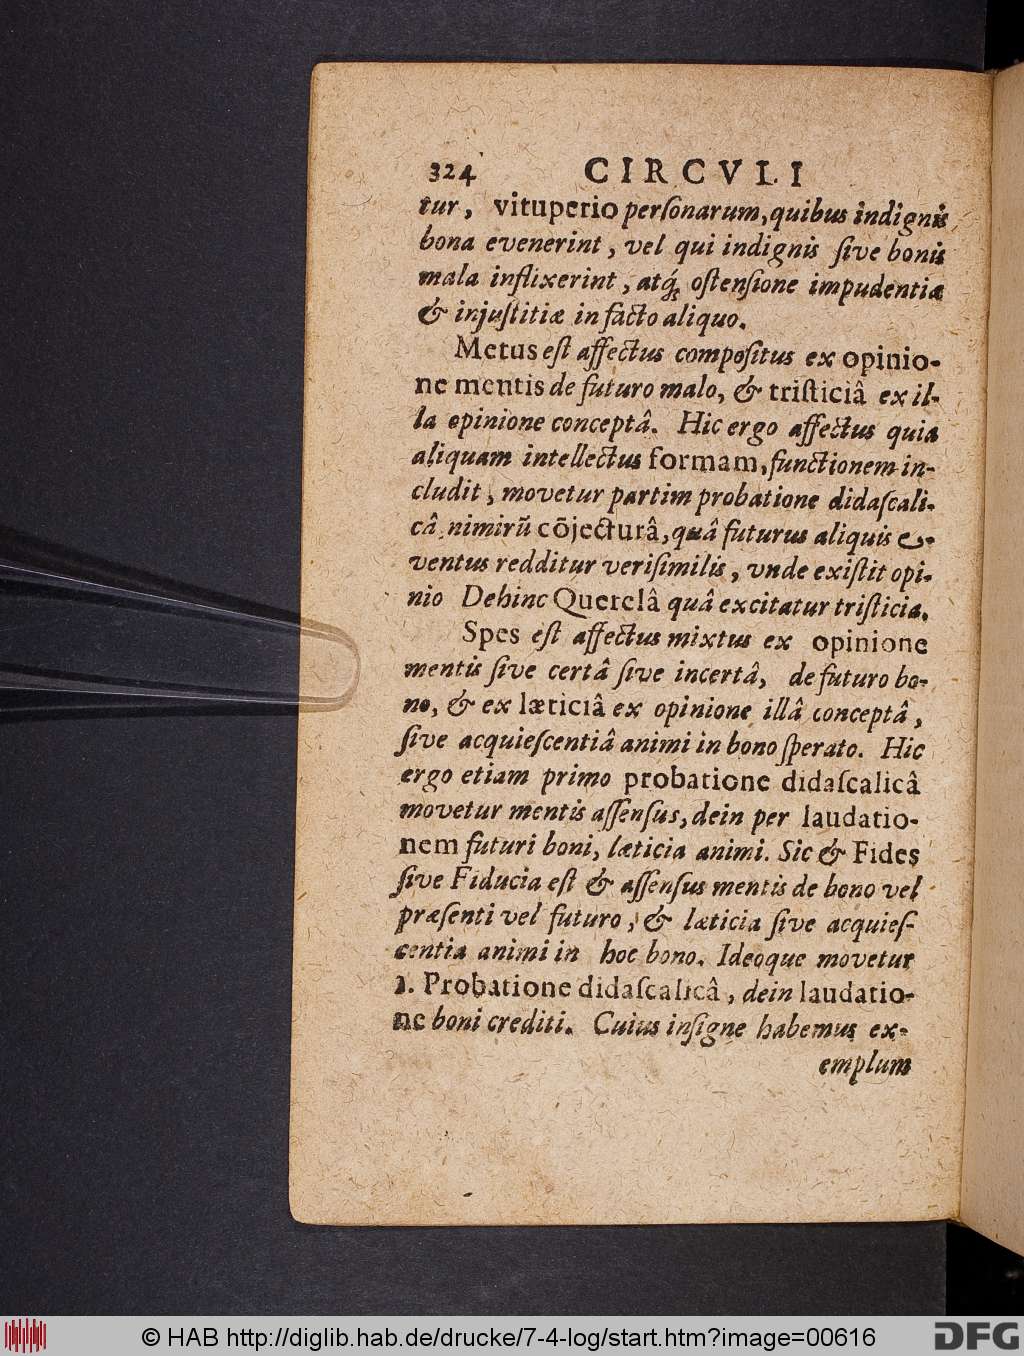 324 CIRCVLI
tur, vituperio perſonarum, quibus indignis
bona evenerint, vel qui indignis ſive bonis
mala inflixerint, atq́; oſtenſione impudentiæ
& injuſtitiæ in facto aliquo.
Metus eſt affectus compoſitus ex opinio-
ne mentis de futuro malo, & triſticiâ ex il-
la opinione conceptâ. Hic ergo affectus quia
aliquam intellectus formam, functionem in-
cludit, movetur partim probatione didaſcali-
câ nimirũ cõjecturâ, quâ futurus aliquis e-
ventus redditur veriſimilis, vnde exiſtit opi-
nio Dehinc Querelâ quâ excitatur triſticia.
Spes eſt affectus mixtus ex opinione
mentis ſive certâ ſive incertâ, de futuro bo-
no, & ex læticiâ ex opinione illâ conceptâ,
ſive acquieſcentiâ animi in bono ſperato. Hic
ergo etiam primo probatione didaſcalicâ
movetur mentis aſſenſus, dein per laudatio-
nem futuri boni, læticia animi. Sic & Fides
ſive Fiducia eſt & aſſenſus mentis de bono vel
præſenti vel futuro, & læticia ſive acquieſ-
centia animi in hoc bono. Ideoque movetur
1. Probatione didaſcalicâ, dein laudatio-
ne boni crediti. Cuius inſigne habemus ex-
emplum
© HAB http://diglib.hab.de/drucke/7-4-log/start.htm?image=00616
DFG